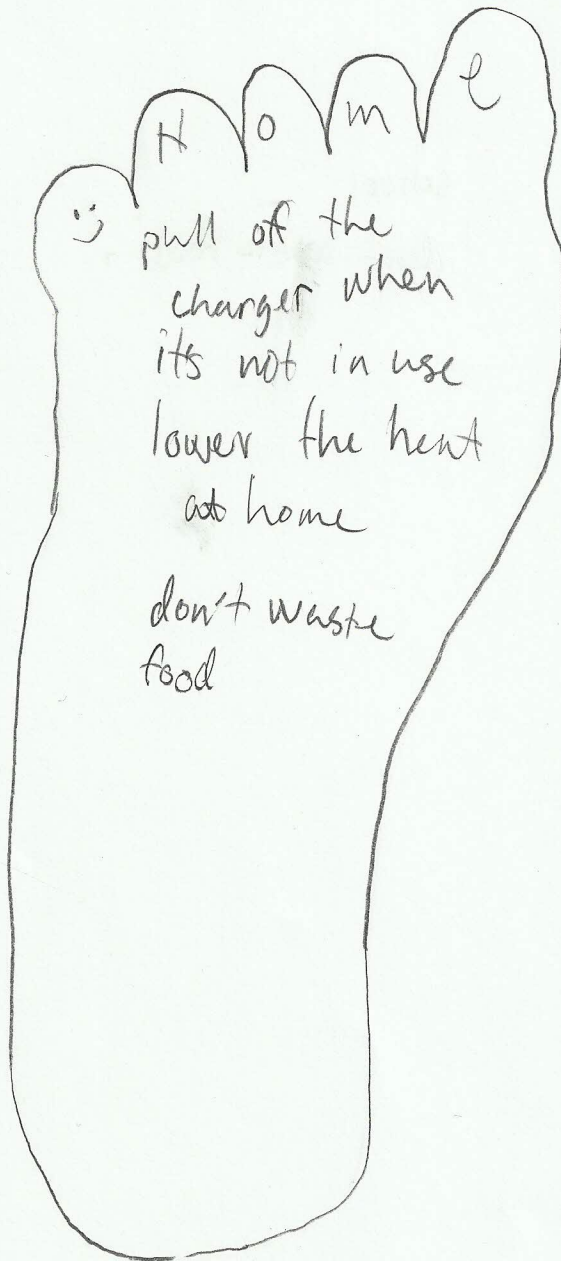 Home
pull of the
charger when
it's not in use
lower the heat
at home
don't waste
food